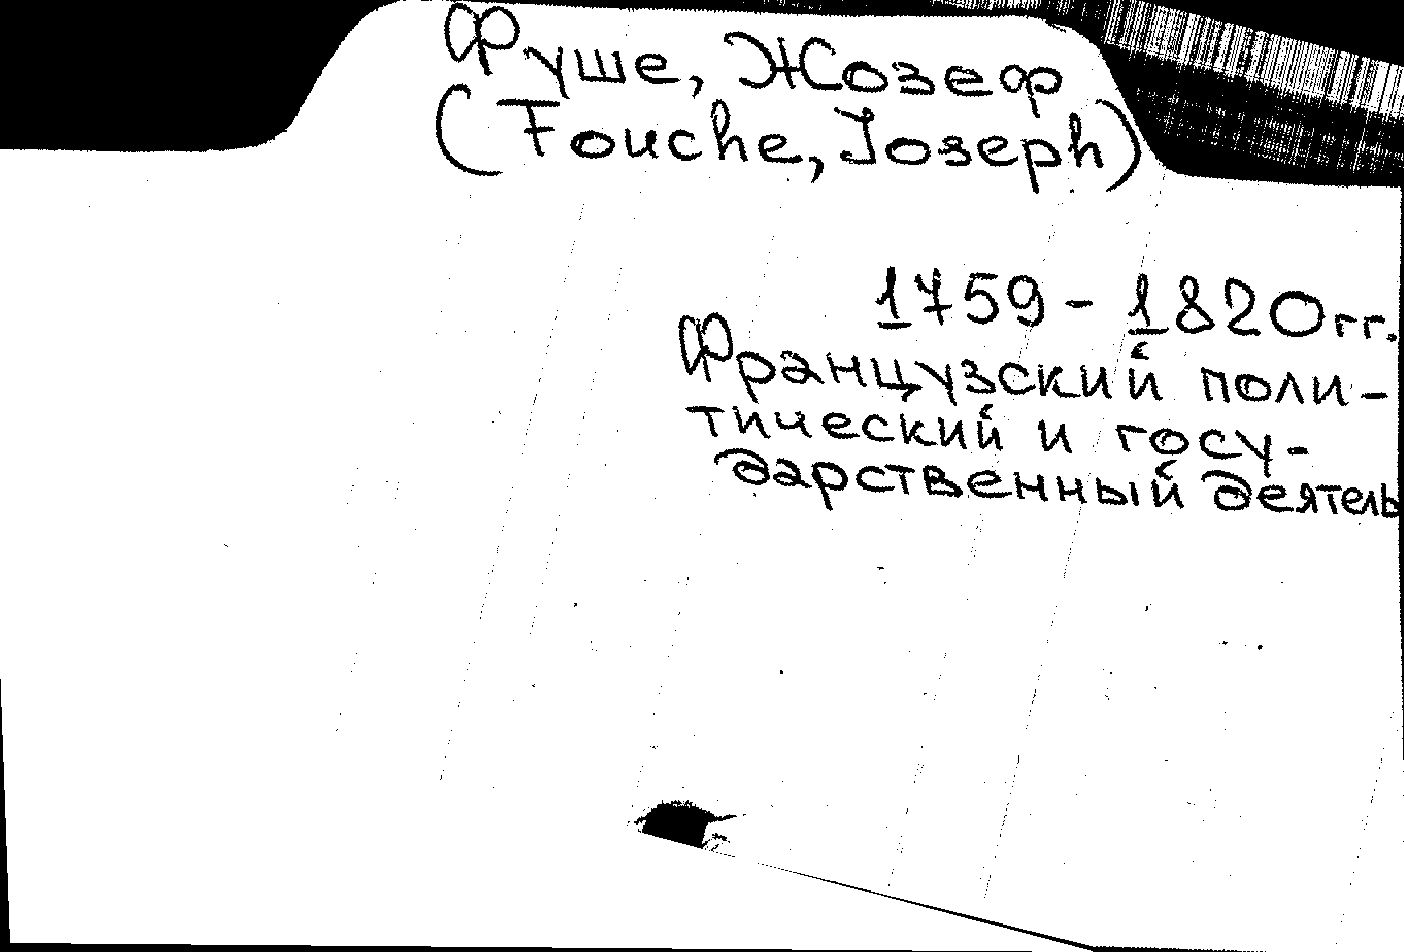 Фуше, Жозеф
(Fouche, Joseph)
1759 - 1820 гг.
Французский поли-
тический и госу-
дарственный деятель